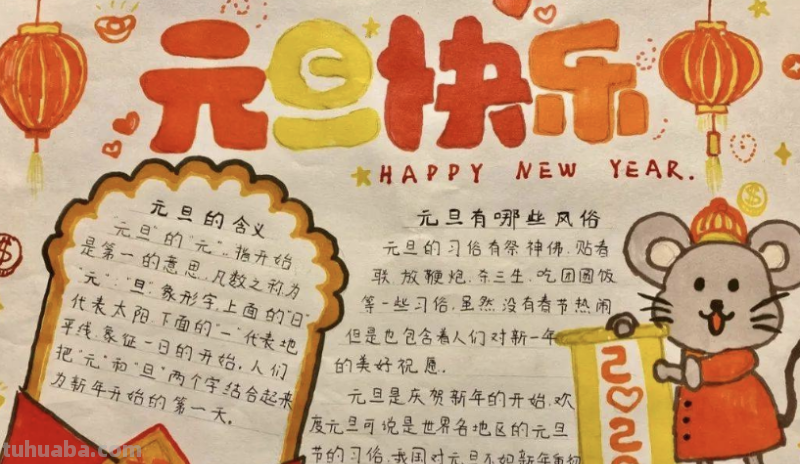 元旦快乐
HAPPY NEW YEAR.
元旦的含义
"元旦"的"元",指开始,
是第一的意思,凡数之称为
"元";"旦",象形字,上面的"日"
代表太阳,下面的"一"代表地
平线,象征一日的开始,人们
把"元"和"旦"两个字结合起来
为新年开始的第一天。
元旦有哪些风俗
元旦的习俗有祭神佛,贴春
联,放鞭炮,杀三生,吃团圆饭
等一些习俗,虽然没有春节热闹
但是也包含着人们对新一年
的美好祝愿。
元旦是庆贺新年的开始,欢
度元旦可说是世界各地区的元旦
节的习俗,我国对元旦不如新年
202
tuhuaba.com